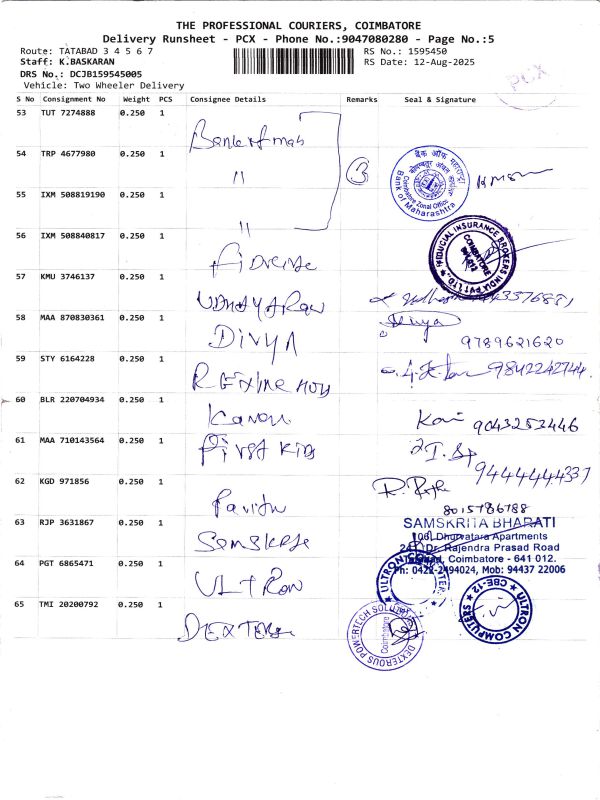 THE PROFESSIONAL COURIERS, COIMBATORE
Delivery Runsheet - PCX - Phone No.:9047080280 - Page No.:5
Route: TATABAD 3 4 5 6 7
RS No.: 1595450
Staff: K.BASKARAN
RS Date: 12-Aug-2025
DRS No.: DCJB159545005
Vehicle: Two Wheeler Delivery
PCX
S No Consignment No Weight PCS Consignee Details Remarks Seal & Signature
53 TUT 7274888 0.250 1 Bank of mah
54 TRP 4677980 0.250 1 " 3
बैंक ऑफ महाराष्ट्र
Coimbatore Zonal Office
Bank of Maharashtra
55 IXM 508819190 0.250 1 "
56 IXM 508840817 0.250 1
FIDUCIAL INSURANCE BROKERS INDIA PVT LTD.
COIMBATORE
57 KMU 3746137 0.250 1 UDHAYARAN
58 MAA 870830361 0.250 1 DIVYA Divya 9789621620
59 STY 6164228 0.250 1 9842242744
60 BLR 220704934 0.250 1 Kannan 9043253446
61 MAA 710143564 0.250 1 First Kids 9444444337
62 KGD 971856 0.250 1 8015786788
63 RJP 3631867 0.250 1
SAMSKRITA BHARATI
Dhruvatara Apartments
Dr. Rajendra Prasad Road
Coimbatore - 641 012.
Ph: 0422-2494024, Mob: 94437 22006
64 PGT 6865471 0.250 1 ULTRON
ULTRON COMPUTERS
ULTRON COMPUTERS CBE-12
65 TMI 20200792 0.250 1 DEXTEROUS
DEXTEROUS POWERTECH SOLUTIONS
Coimbatore